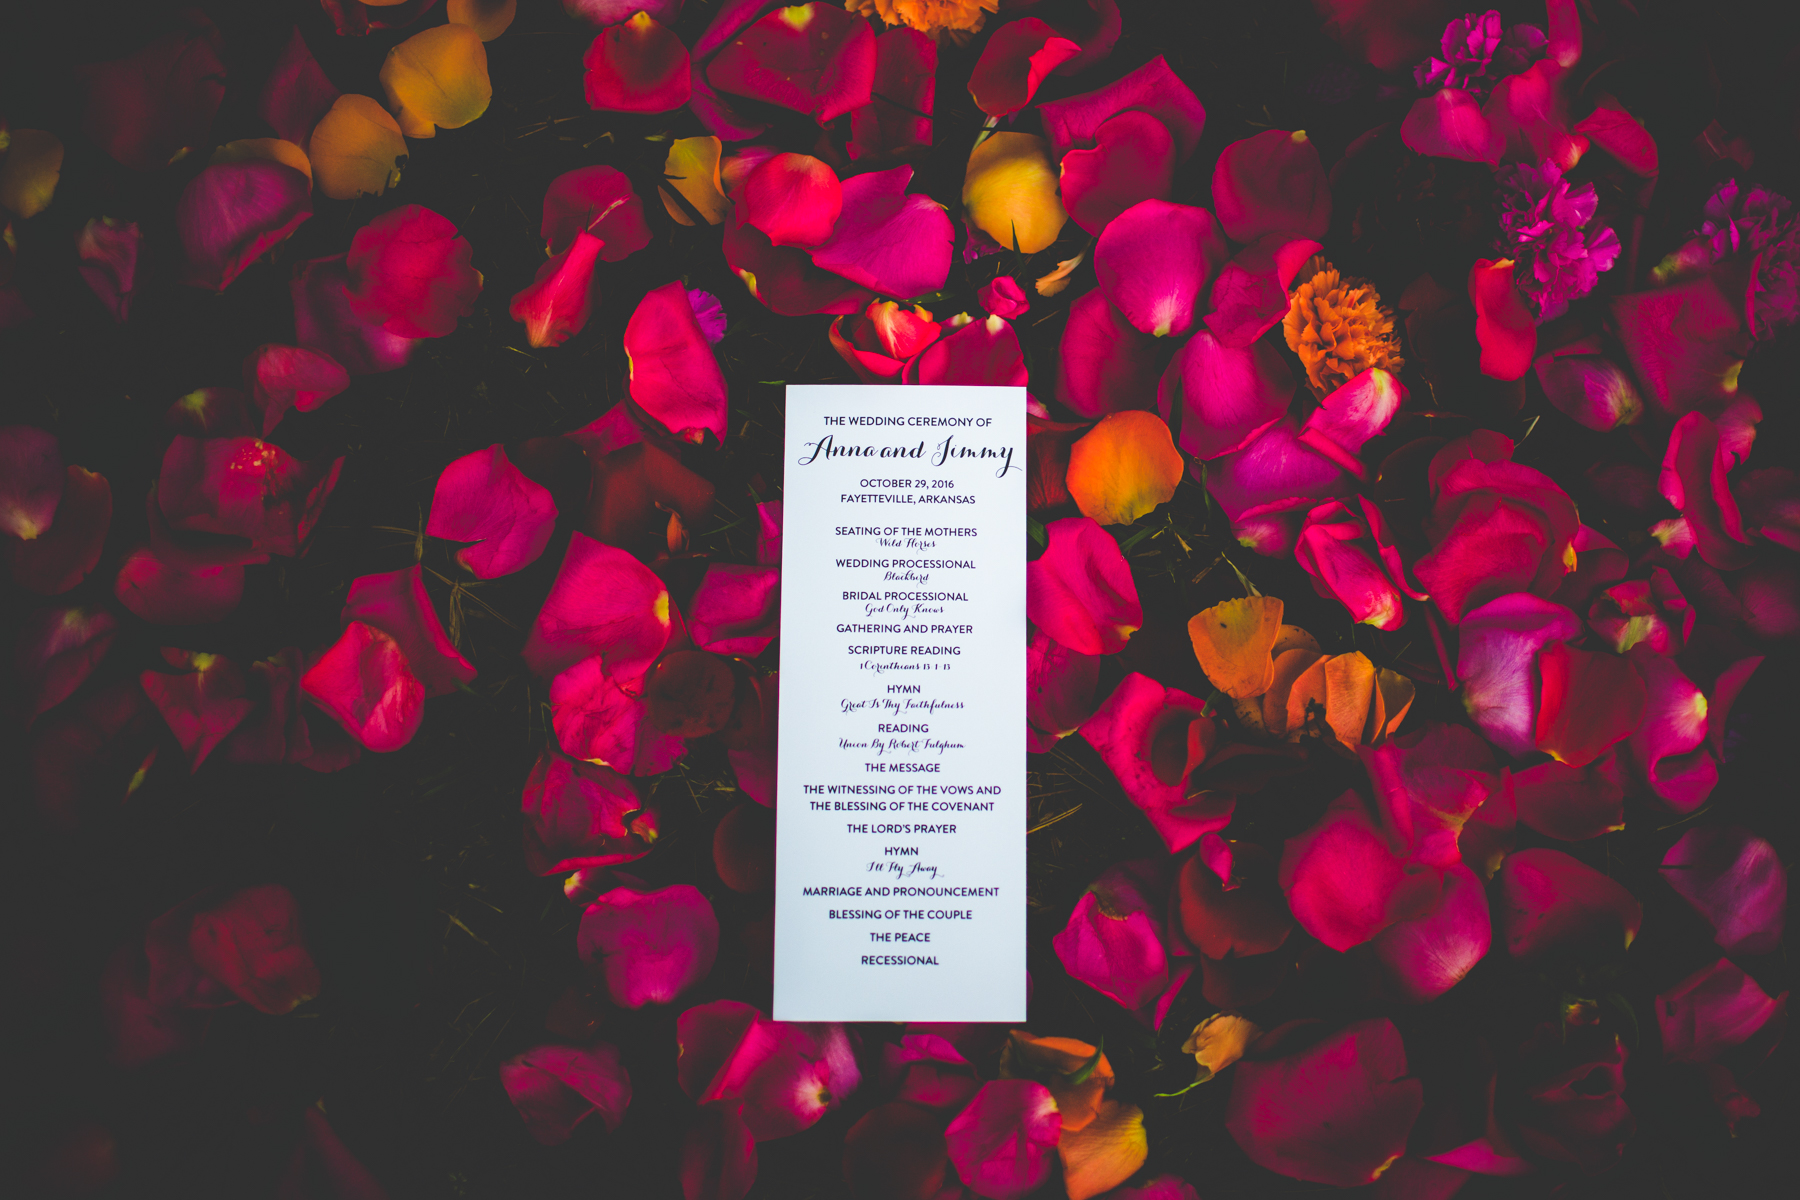 THE WEDDING CEREMONY OF
Anna and Jimmy
OCTOBER 29, 2016
FAYETTEVILLE, ARKANSAS
SEATING OF THE MOTHERS
Wild Horses
WEDDING PROCESSIONAL
Blackbird
BRIDAL PROCESSIONAL
God Only Knows
GATHERING AND PRAYER
SCRIPTURE READING
1 Corinthians 13:1-13
HYMN
Great Is Thy Faithfulness
READING
Union By Robert Fulghum
THE MESSAGE
THE WITNESSING OF THE VOWS AND
THE BLESSING OF THE COVENANT
THE LORD'S PRAYER
HYMN
I'll Fly Away
MARRIAGE AND PRONOUNCEMENT
BLESSING OF THE COUPLE
THE PEACE
RECESSIONAL